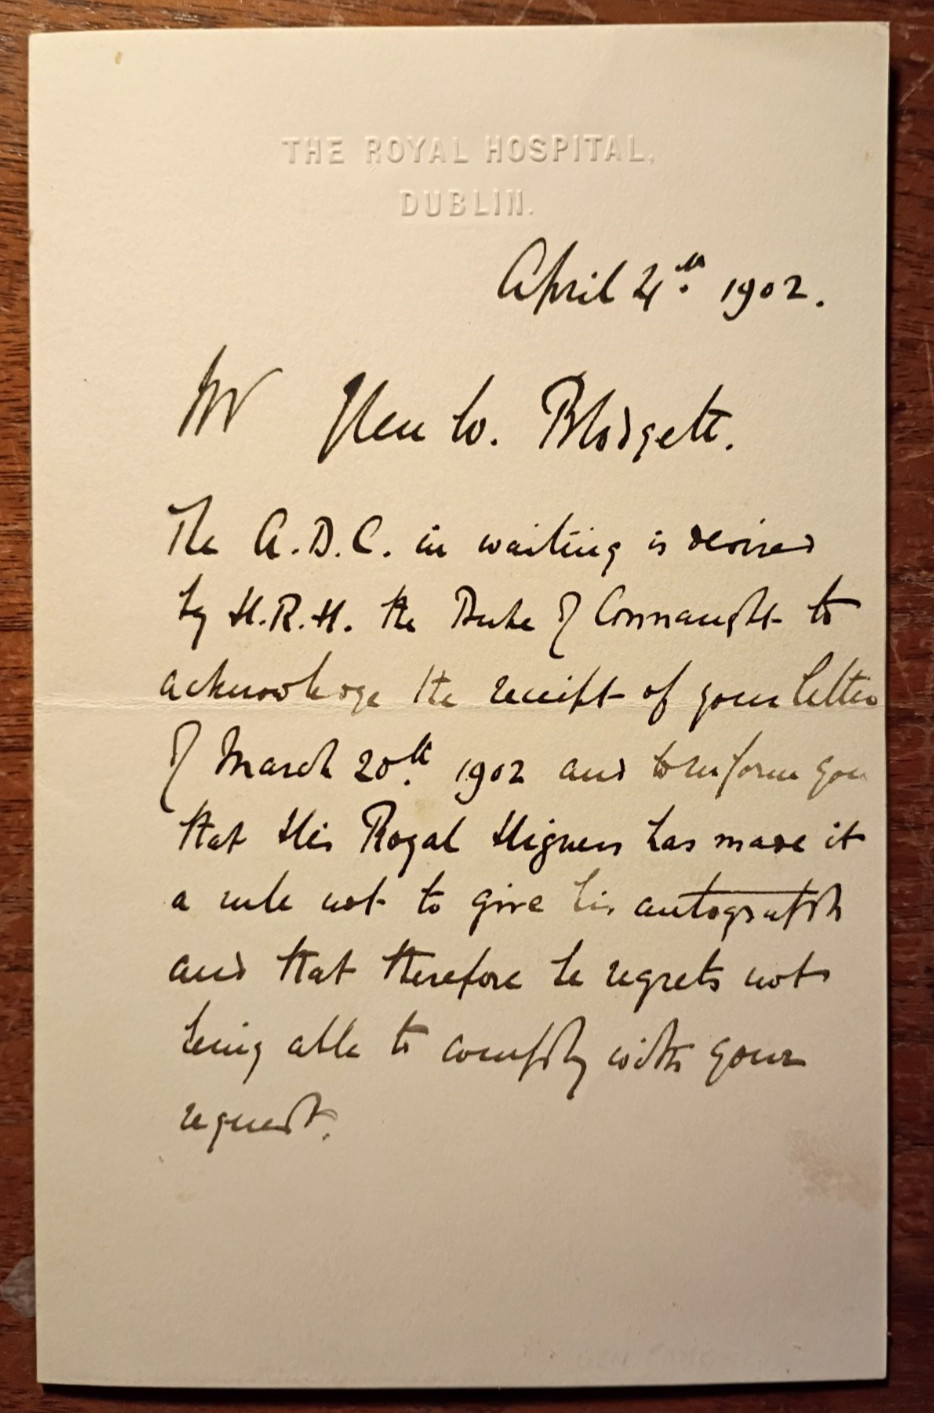 THE ROYAL HOSPITAL,
DUBLIN.
April 4th. 1902.
Mr Glen W. Blodgett.
The A.D.C. in waiting is desired
by H.R.H. the Duke of Connaught to
acknowledge the receipt of your letter
of March 20th. 1902 and to inform you
that His Royal Highness has made it
a rule not to give his autograph
and that therefore he regrets not
being able to comply with your
request.